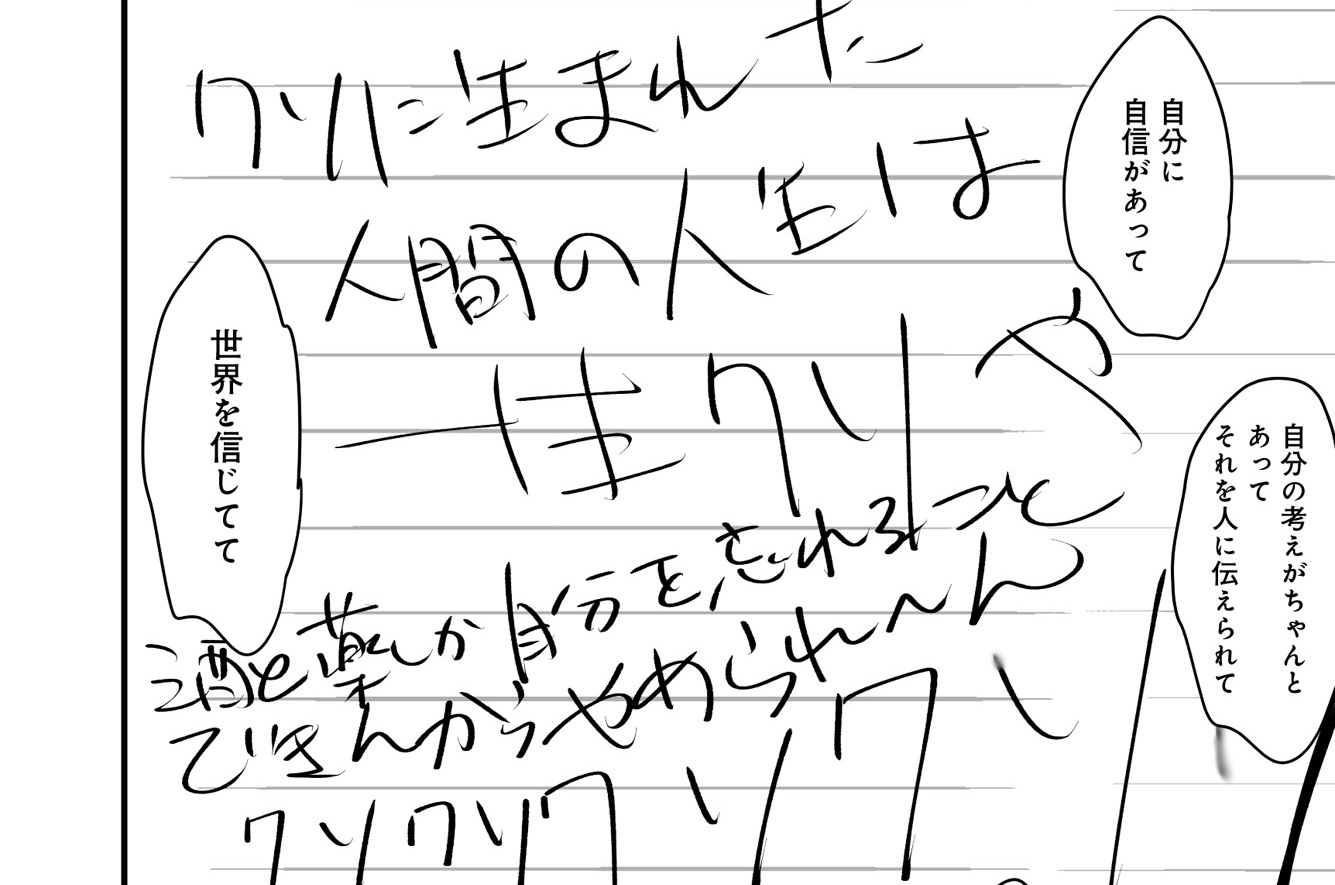 自分に
自信があって
自分の考えがちゃんと
あって
それを人に伝えられて
世界を信じてて
クソに生まれた
人間の人生は
一生クソや
酒と薬しか自分を忘れること
できんからやめられへん
クソクソクソクソ